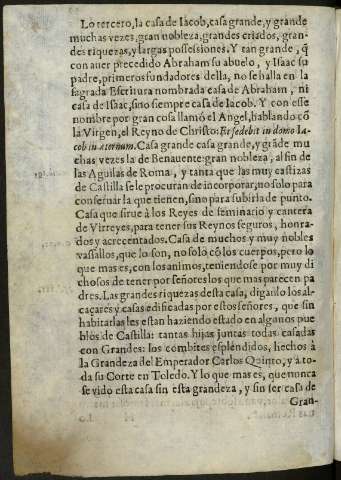 Lo tercero, la casa de Iacob, casa grande, y grande
muchas vezes, gran nobleza, grandes criados, gran-
des riquezas, y largas possessiones. Y tan grande, q̃
con auer precedido Abraham su abuelo, y Isaac su
padre, primeros fundadores della, no se halla en la
sagrada Escritura nombrada casa de Abraham, ni
casa de Isaac, sino siempre casa de Iacob. Y con esse
nombre por gran cosa llamó el Angel, hablando cõ
la Virgen, el Reyno de Christo: Et sedebit in domo Ia-
cob in æternum. Casa grande casa grande, y grãde mu
chas vezes la de Benauente: gran nobleza, al fin de
las Aguilas de Roma, y tanta que las muy castizas
de Castilla se le procuran de incorporar, no solo para
conseruar la que tienen, sino para subirla de punto.
Casa que sirue à los Reyes de seminario y cantera
de Virreyes, para tener sus Reynos seguros, honra-
dos y acrecentados. Casa de muchos y muy nobles
vassallos, que lo son, no solo cõ los cuerpos, pero lo
que mas es, con los animos, teniendose por muy di
chosos de tener por señores los que mas parecen pa
dres. Las grandes riquezas desta casa, diganlo los al-
caçares y casas edificadas por estos señores, que sin
habitarlas les estan haziendo estado en algunos pue
blos de Castilla: tantas hijas juntas todas casadas
con Grandes: los combites esplendidos, hechos à
la Grandeza del Emperador Carlos Quinto, y à to-
da su Corte en Toledo. Y lo que mas es, que nunca
se vido esta casa sin esta grandeza, y sin ser casa de
Gran-